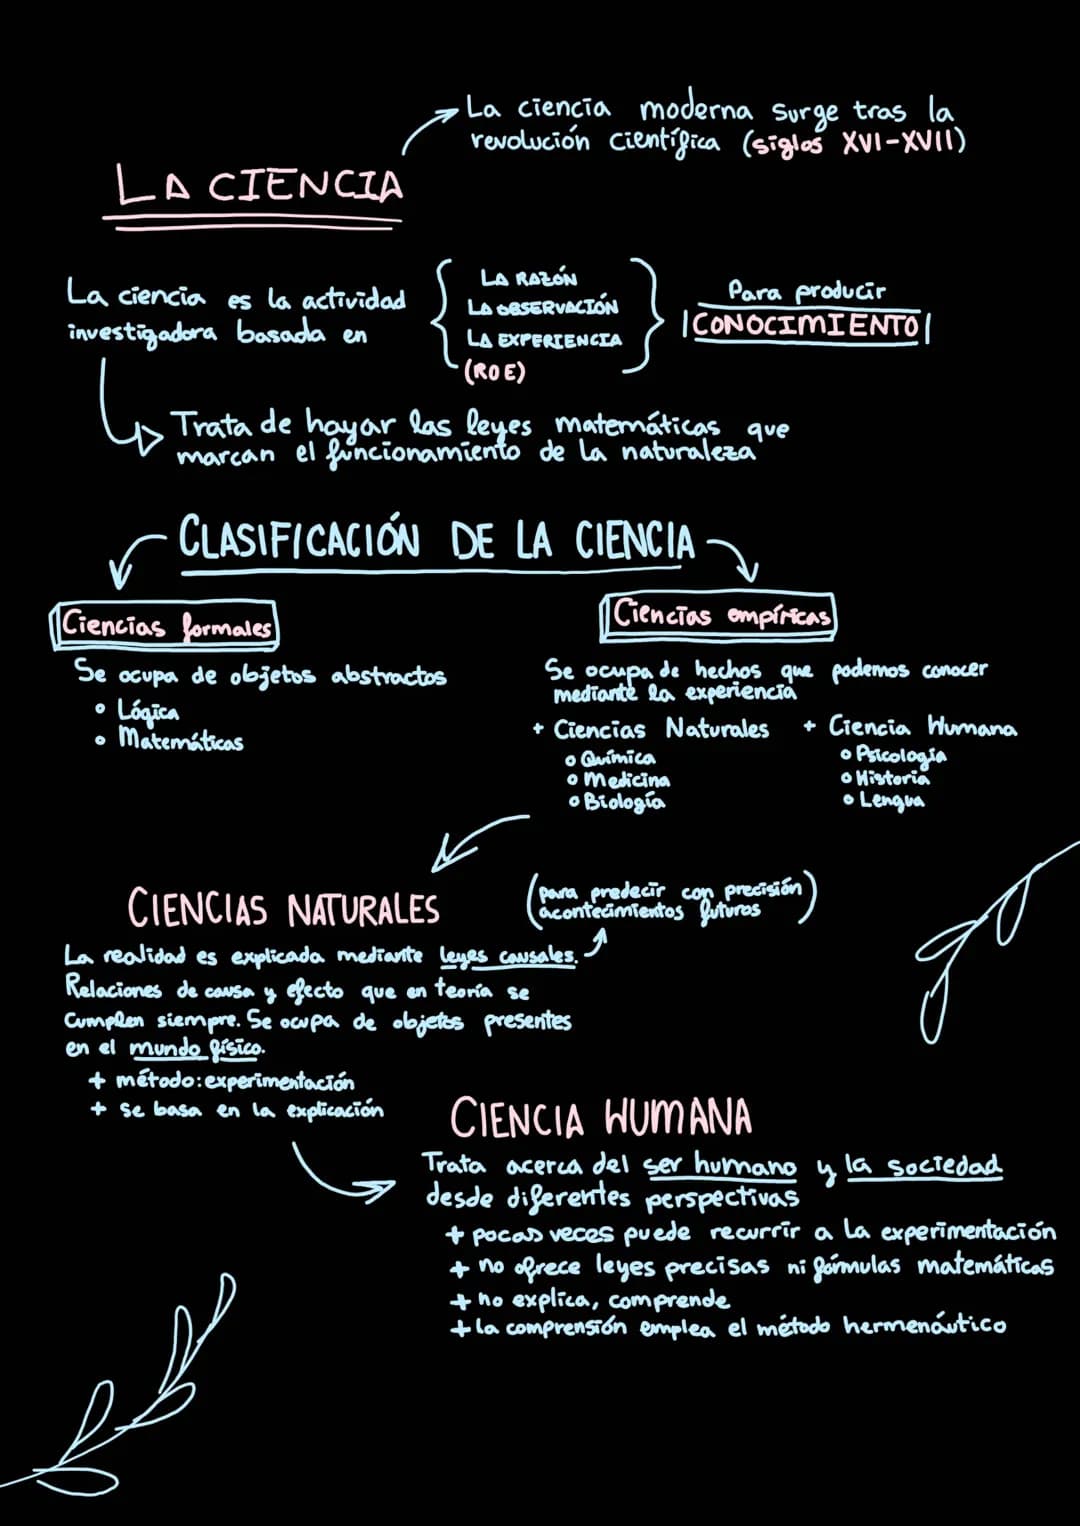 La ciencia moderna surge tras la
revolución científica (siglos XVI-XVII)
LA CIENCIA
La ciencia es la actividad
investigadora basada en
LA RAZÓN
LA OBSERVACIÓN
LA EXPERIENCIA
(ROE)
Para producir
CONOCIMIENTO
Trata de hayar las leyes matemáticas que
marcan el funcionamiento de la naturaleza
CLASIFICACIÓN DE LA CIENCIA
Ciencias formales
Se ocupa de objetos abstractos
• Lógica
• Matemáticas
Ciencias empíricas
Se ocupa de hechos que podemos conocer
mediante la experiencia
+ Ciencias Naturales
• Química
• Medicina
• Biología
+ Ciencia Humana
• Psicología
• Historia
• Lengua
CIENCIAS NATURALES
(para predecir con precisión
acontecimientos futuros)
La realidad es explicada mediante leyes causales.
Relaciones de causa y efecto que en teoría se
cumplen siempre. Se ocupa de objetos presentes
en el mundo físico.
+ método: experimentación
+ se basa en la explicación
CIENCIA HUMANA
Trata acerca del ser humano y la sociedad
desde diferentes perspectivas
+ pocas veces puede recurrir a la experimentación
+ no ofrece leyes precisas ni fórmulas matemáticas
+ no explica, comprende
+ la comprensión emplea el método hermenáutico